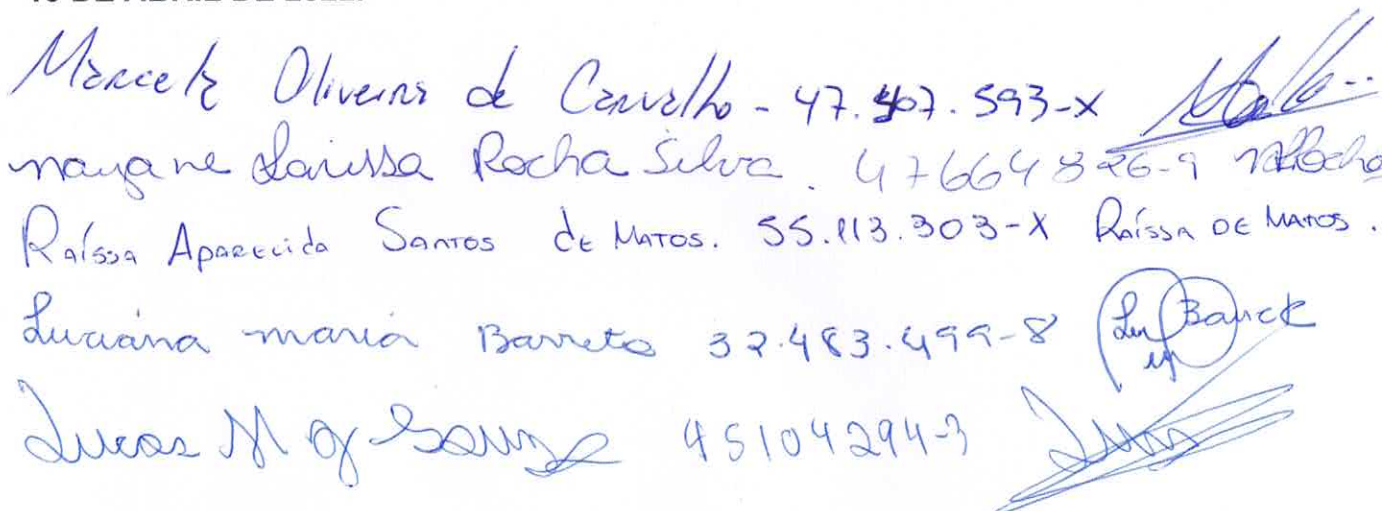 Marcela Oliveira de Carvalho - 47.407.593-X
Mayane Larissa Rocha Silva. 47664826-9 Rocha
Raíssa Aparecida Santos de Matos. 55.113.303-X Raíssa de Matos.
Luciana maria Barreto 32.483.499-8
Lucas M de Souza 45104294-3 Lucas